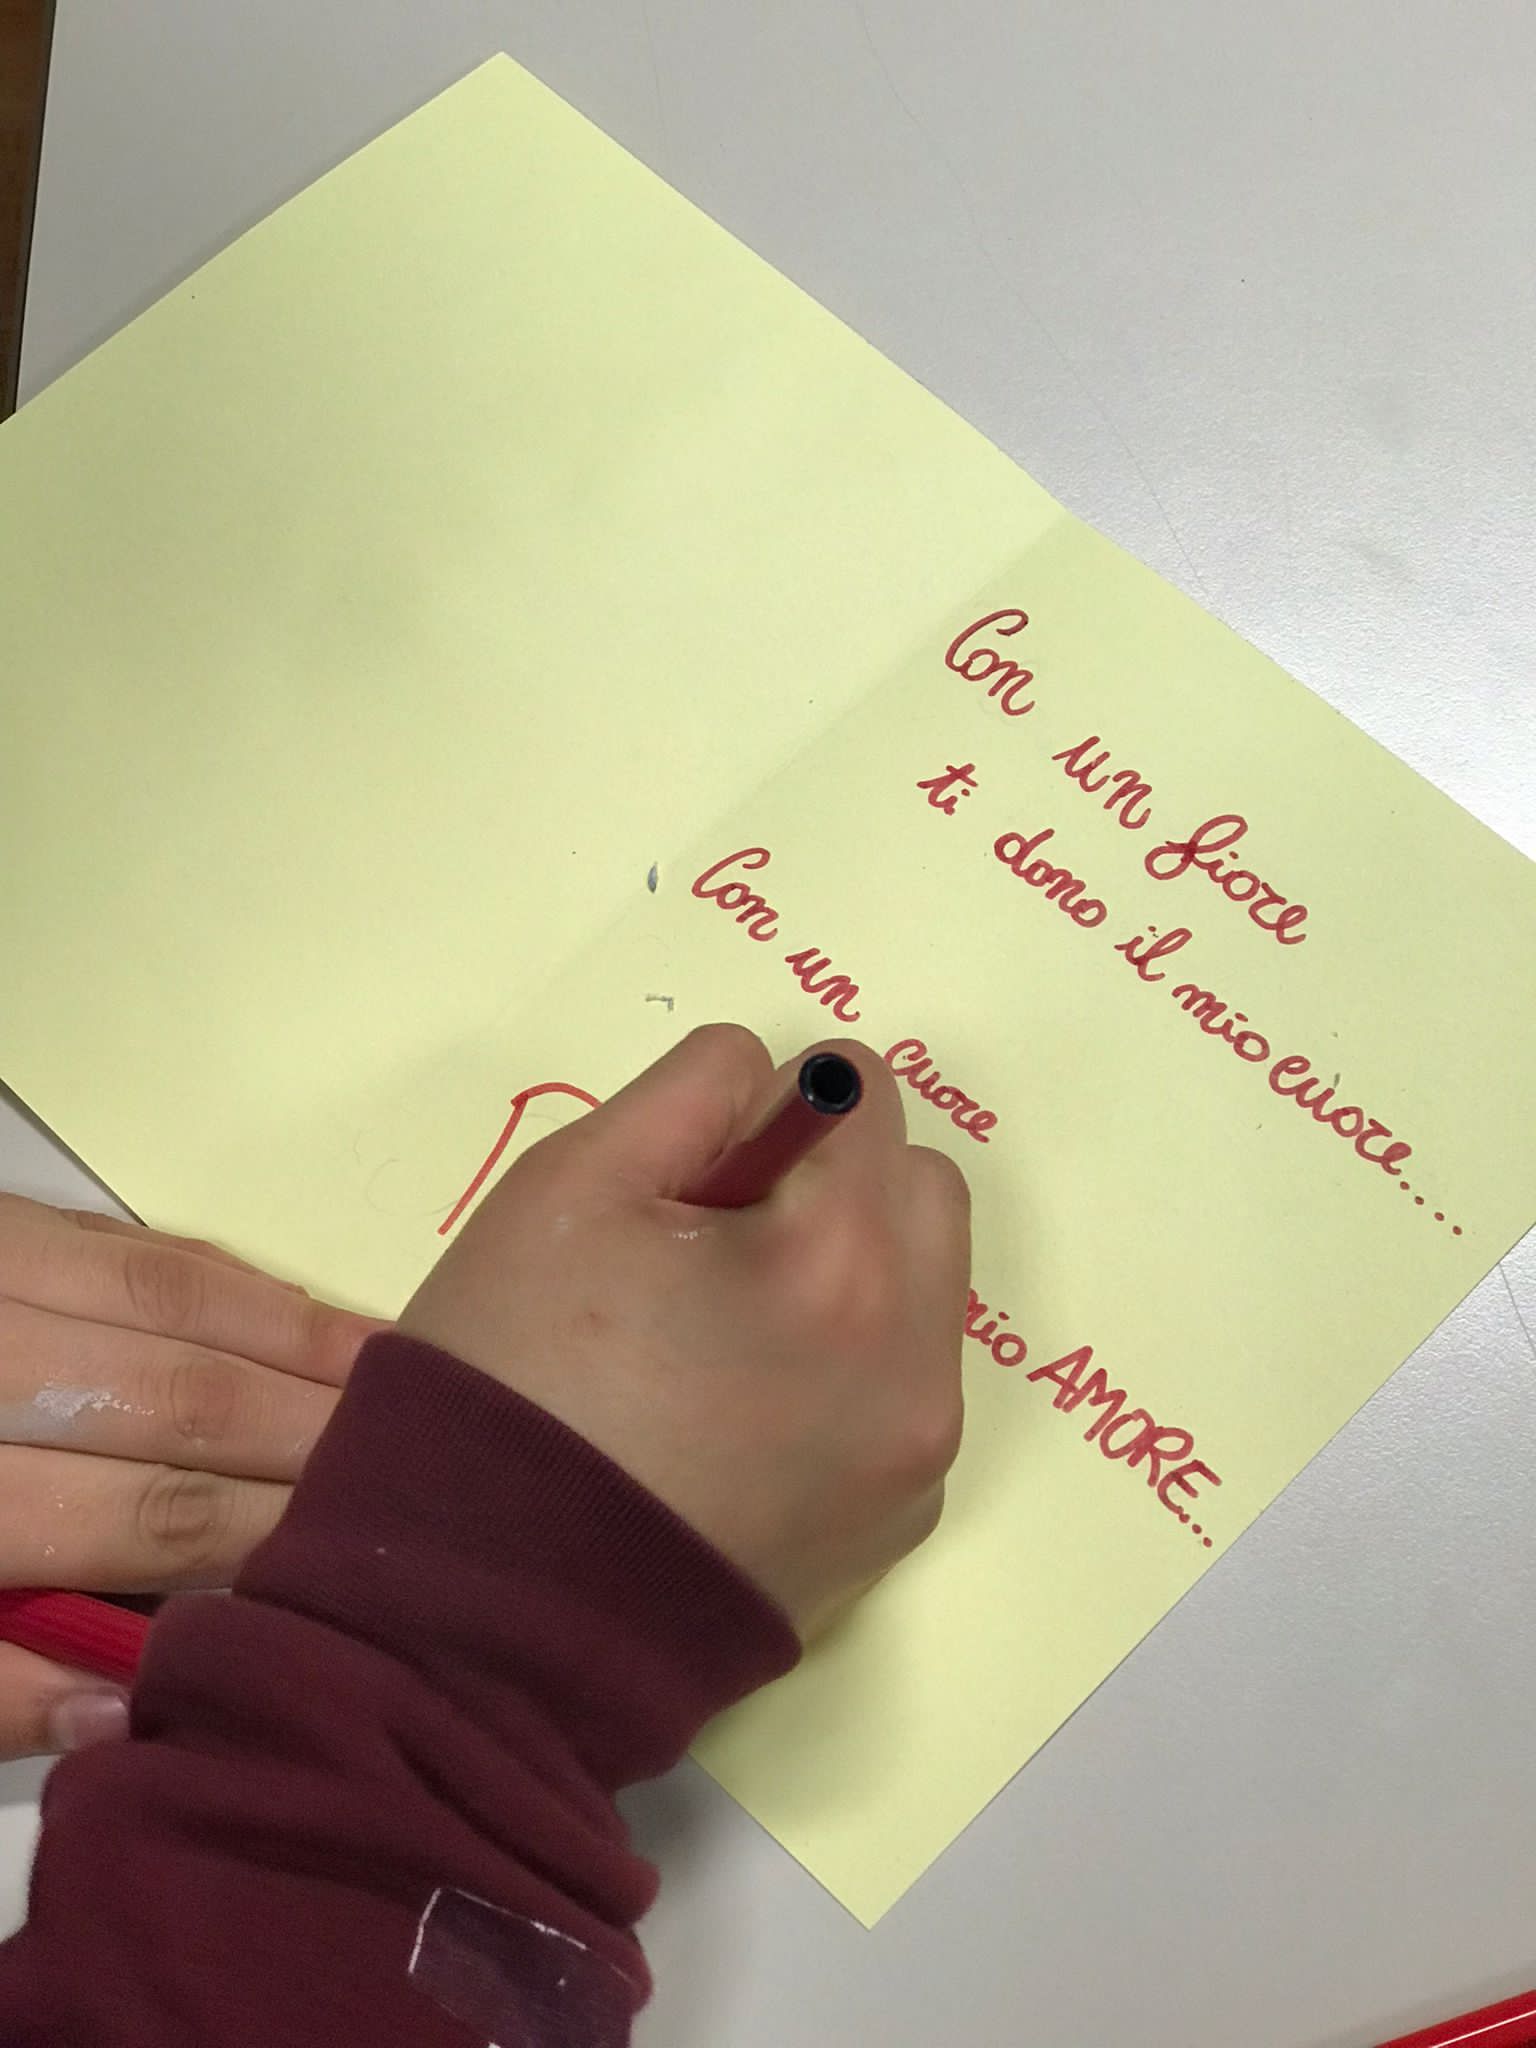 Con un fiore
ti dono il mio cuore....
Con un cuore
mio AMORE...